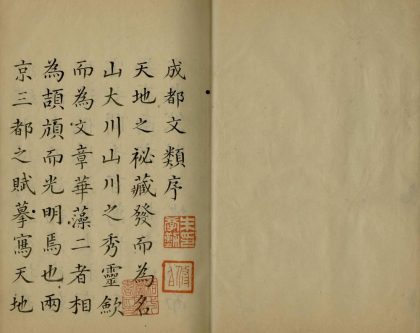 成都文類序
天地之祕藏發而為名
山大川山川之秀靈歛
而為文章華藻二者相
為頡頏而光明焉也兩
京三都之賦摹寫天地